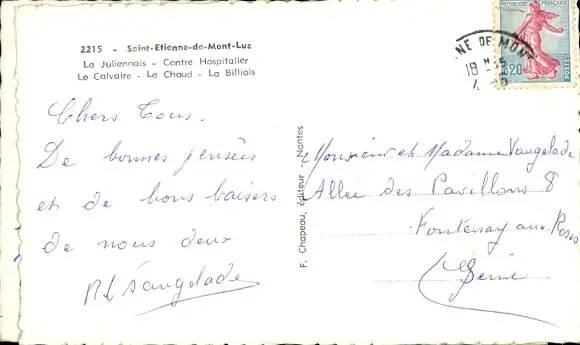 2215 - Saint-Etienne-de-Mont-Luc
La Juliennais - Centre Hospitalier
Le Calvaire - Le Chaud - La Billiais
Chers Tous.
De bonnes pensées
et de bons baisers
de nous deux
Vaugelade
F. Chapeau, éditeur - Nantes
REPUBLIQUE FRANÇAISE
0,20
POSTES
NE DE MONT
18 H
Monsieur et Madame Vaugelade
Allée des Pavillons 8
Fontenay aux Roses
Seine